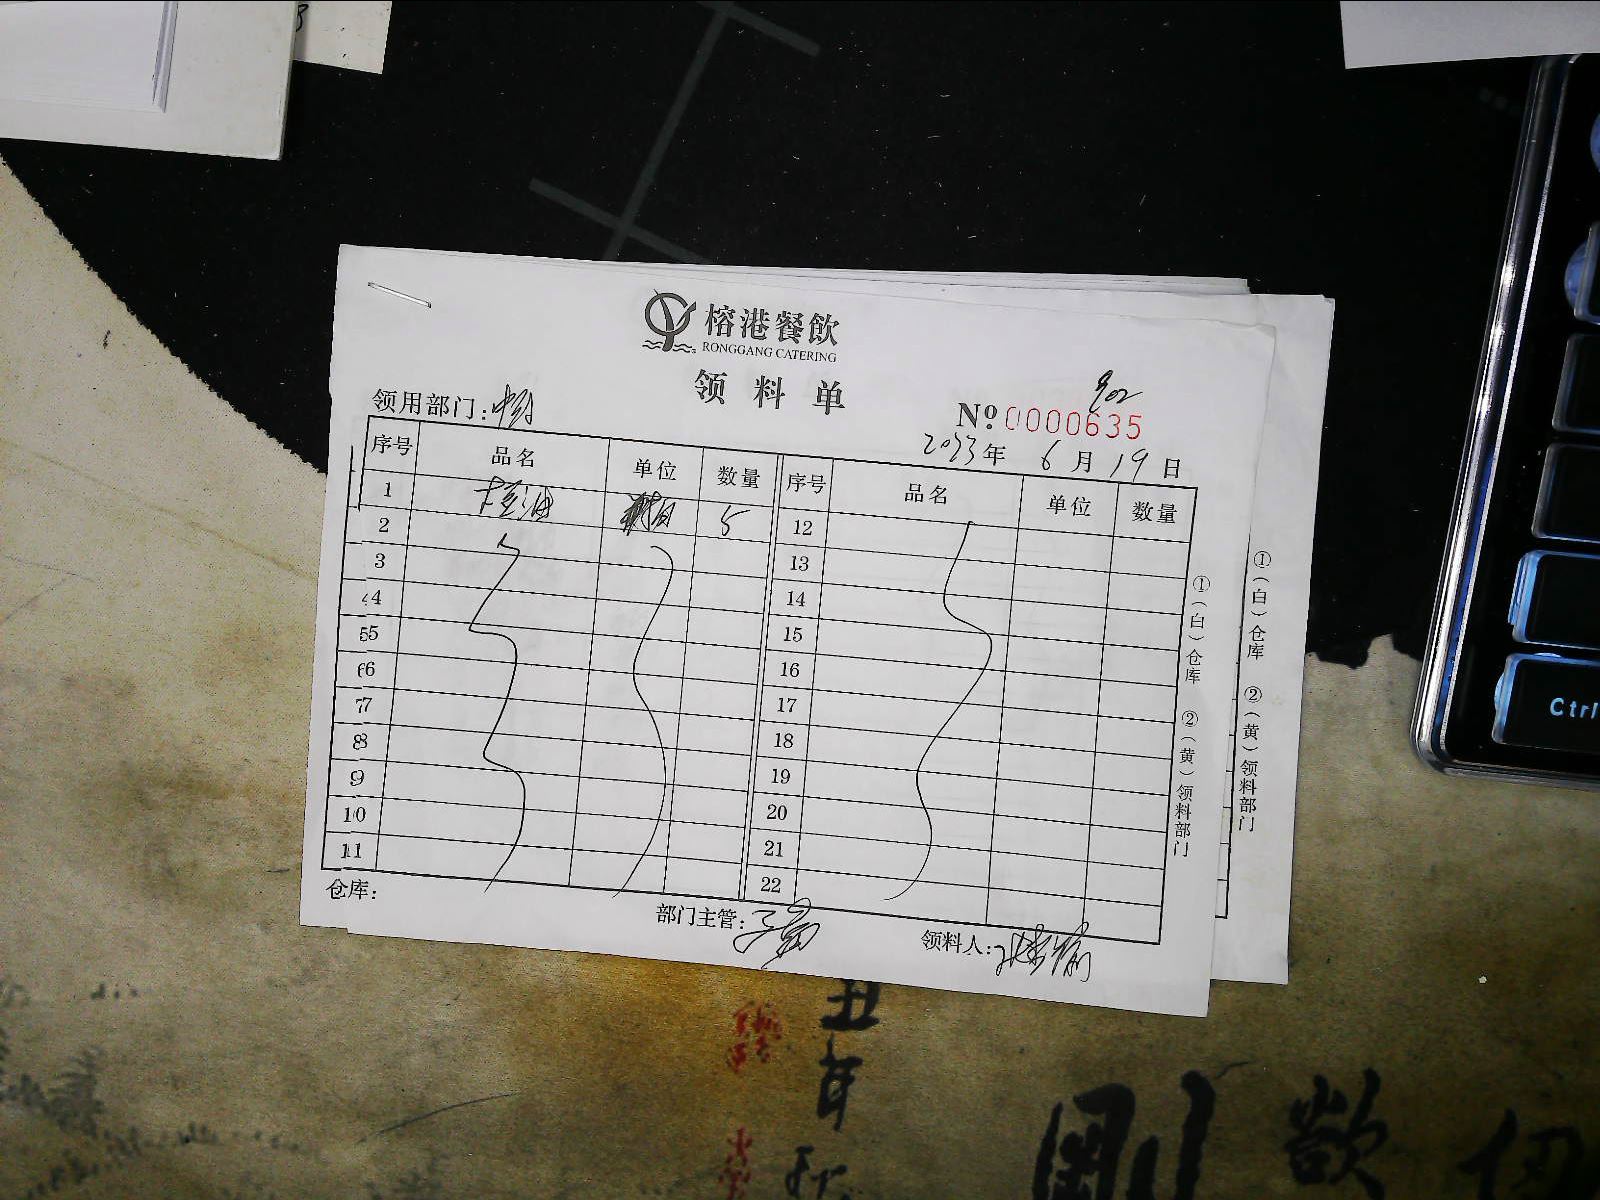 榕港餐飲
RONGGANG CATERING
领料单
902
领用部门:中厨
Nº 0000635
2023年 6月 19日
序号 品名 单位 数量 序号 品名 单位 数量
1 大豆油 5 12
2 13
3 14
4 15
5 16
6 17
7 18
8 19
9 20
10 21
11 22
仓库: 部门主管: 领料人:
①(白)仓库 ②(黄)领料部门
①(白)仓库 ②(黄)领料部门
Ctrl
丑年
剛
欲